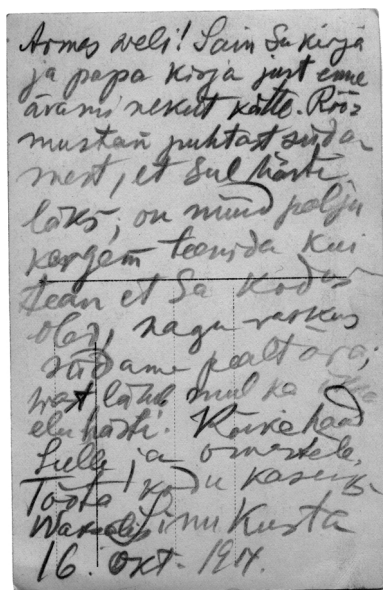 Armas veli! Sain Su kirja
ja papa kirja just enne
äraminekut kätte. Rõõ-
mustan puhtast süda
mest, et Sul hästi
läks, on nüüd palju
kergem teenida kui
tean et Sa kodus
oled, nagu raskus
südame pealt ära,
vast läheb mul ka
elu hästi. Kõike head
Sulle ja omastele.
Tööta kodu kasuks
Sinu Kusta
16. Okt. 1914.